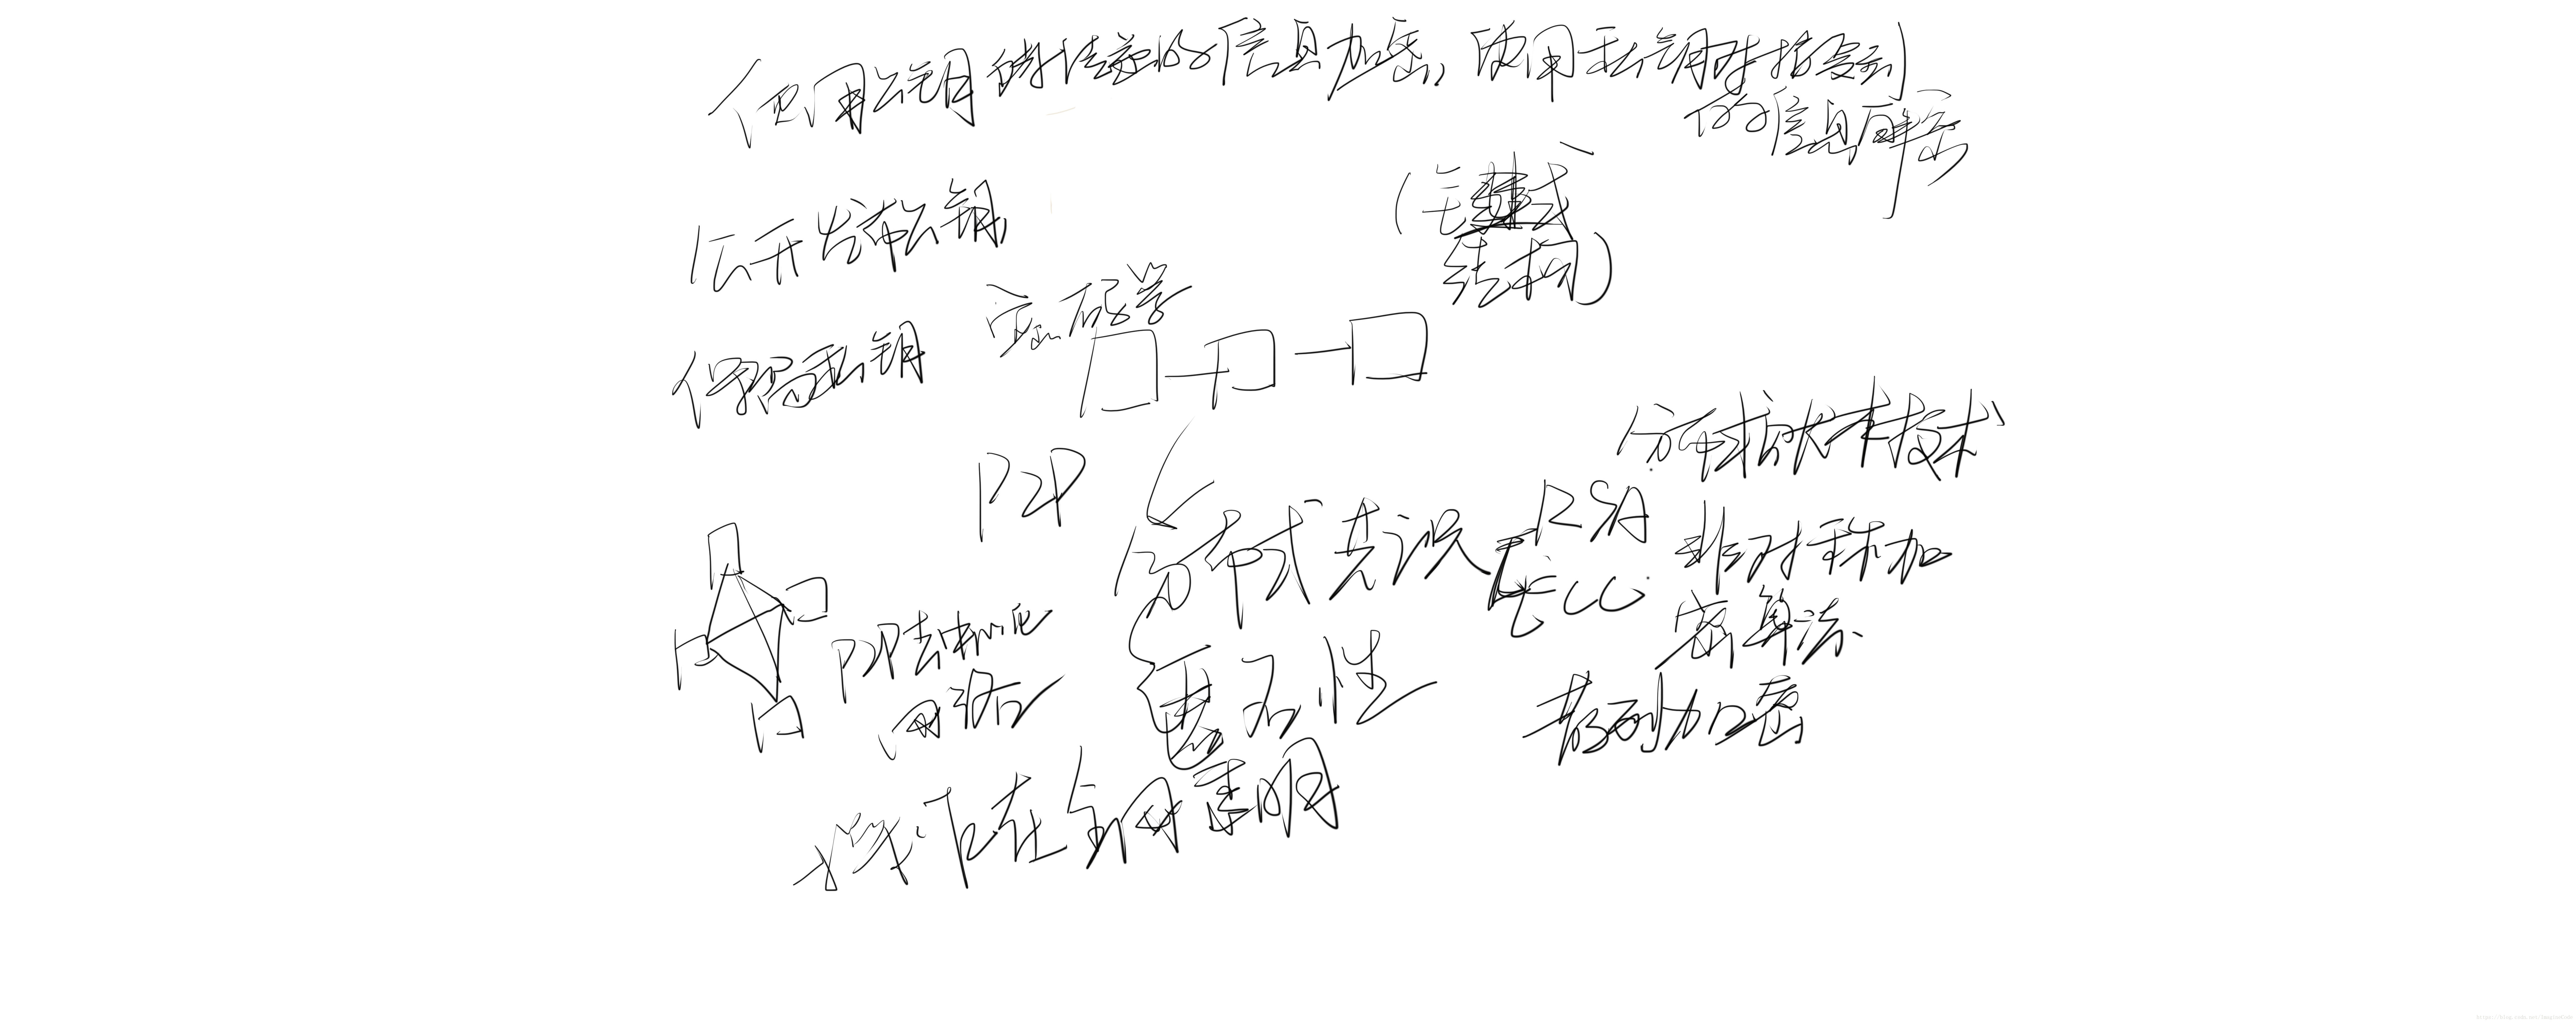 使用公钥将传递的信息加密,使用私钥对接受到
的信息解密
(链式
结构)
公开发布公钥,
密码学
保留私钥
分布式账本技术
P2P
RSA
分布式共识
非对称加
ECC
密算法
P2P去中心化
网络
匿名性
散列加密
操作在全网表明